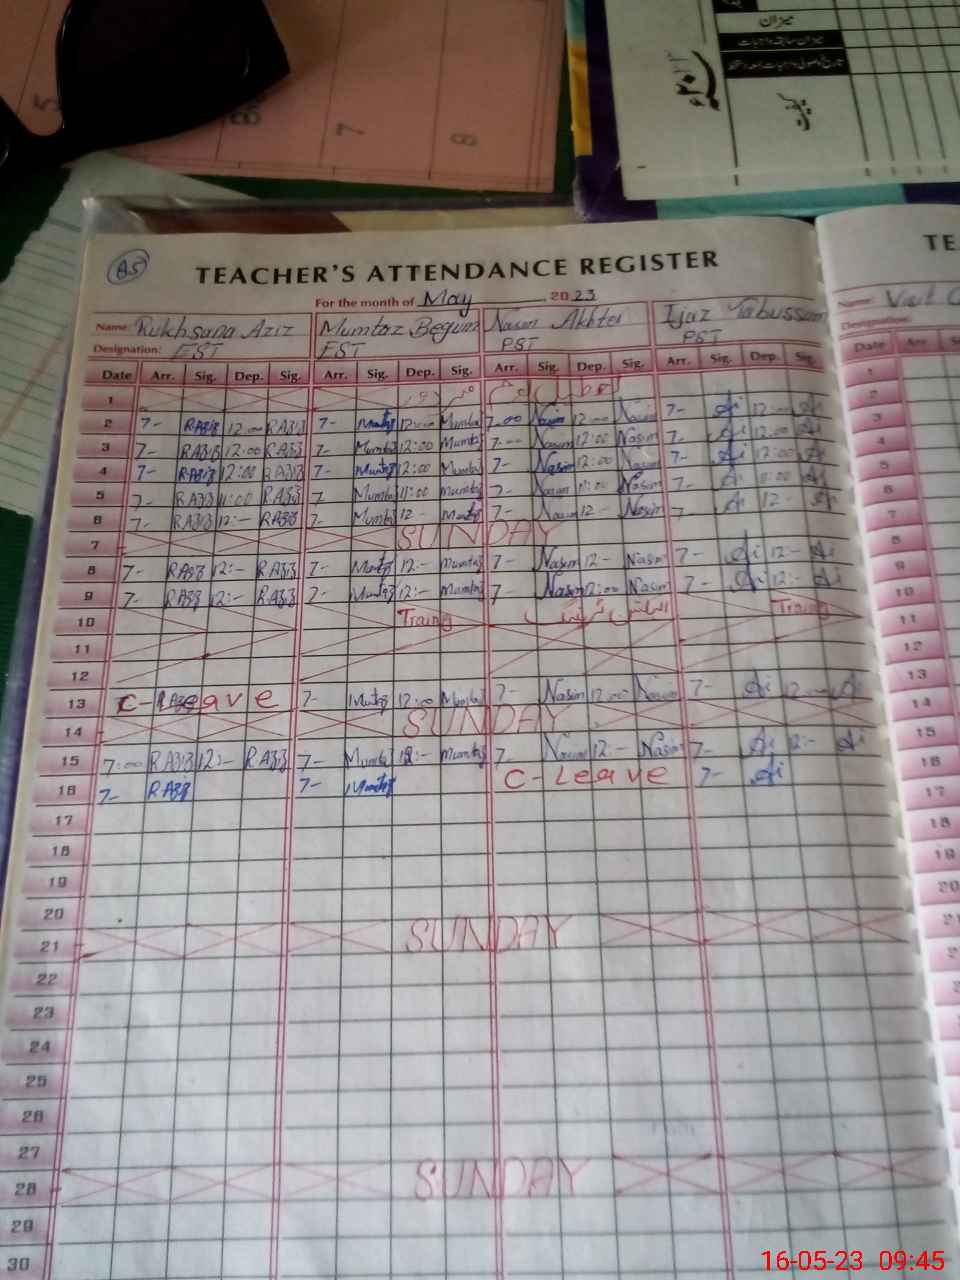 5
7
8
میزان
میزان سابقہ واجبات
کیفیت
85
TEACHER'S ATTENDANCE REGISTER
TE
For the month of May 2023
Name: Rukhsana Aziz Mumtaz Begum Nasim Akhter Ijaz Tabussum Name: Visit
Designation: EST EST PST PST Designation:
Date Arr. Sig. Dep. Sig. Arr. Sig. Dep. Sig. Arr. Sig. Dep. Sig. Arr. Sig. Dep. Sig. Date Arr. S
1
2 7- RAziz 12:00 RAziz 7- Mumtaz 12:00 Mumtaz 7:00 Nasim 12:00 Nasim 7- Ai 12:00 Ai
3 7- RAziz 12:00 RAziz 7- Mumtaz 12:00 Mumtaz 7:00 Nasim 12:00 Nasim 7- Ai 12:00 Ai
4 7- RAziz 12:00 RAziz 7- Mumtaz 12:00 Mumtaz 7- Nasim 12:00 Nasim 7- Ai 12:00 Ai
5 7- RAziz 11:00 RAziz 7 Mumtaz 11:00 Mumtaz 7- Nasim 11:00 Nasim 7- Ai 11:00 Ai
6 7- RAziz 12:- RAziz 7- Mumtaz 12- Mumtaz 7- Nasim 12- Nasim 7- Ai 12- Ai
7 SUNDAY
8 7- RAziz 12:- RAziz 7- Mumtaz 12:- Mumtaz 7- Nasim 12:- Nasim 7- Ai 12:- Ai
9 7- RAziz 12:- RAziz 7- Mumtaz 12:- Mumtaz 7- Nasim 12:00 Nasim 7- Ai 12:- Ai
10 Traing ٹریننگ Traing
11
12
13 C-Leave 7- Mumtaz 12:00 Mumtaz 7- Nasim 12:00 Nasim 7- Ai 12:00 Ai
14 SUNDAY
15 7:00 RAziz 12:- RAziz 7- Mumtaz 12:- Mumtaz 7 Nasim 12:- Nasim 7- Ai 12:- Ai
16 7- RAziz 7- Mumtaz C-Leave 7- Ai
17
18
19
20
21 SUNDAY
22
23
24
25
26
27
28 SUNDAY
29
30
1
2
3
4
5
6
7
8
9
10
11
12
13
14
15
16
17
18
19
20
16-05-23 09:45